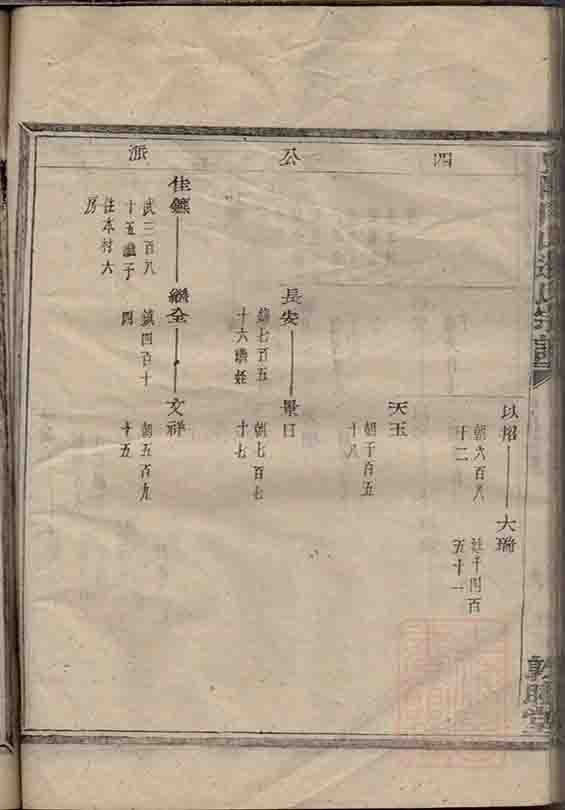 四公派
以招
朝六百八
十二
大瑞
廷千四百
五十一
天玉
朝千百五
十八
長安
鎮七百五
十六
景日
朝七百七
十七
佳
武三百八
十五
子
住本村六
房
繼全
鎮四百十
四
文祥
朝五百九
十五
氏宗譜
敦睦堂